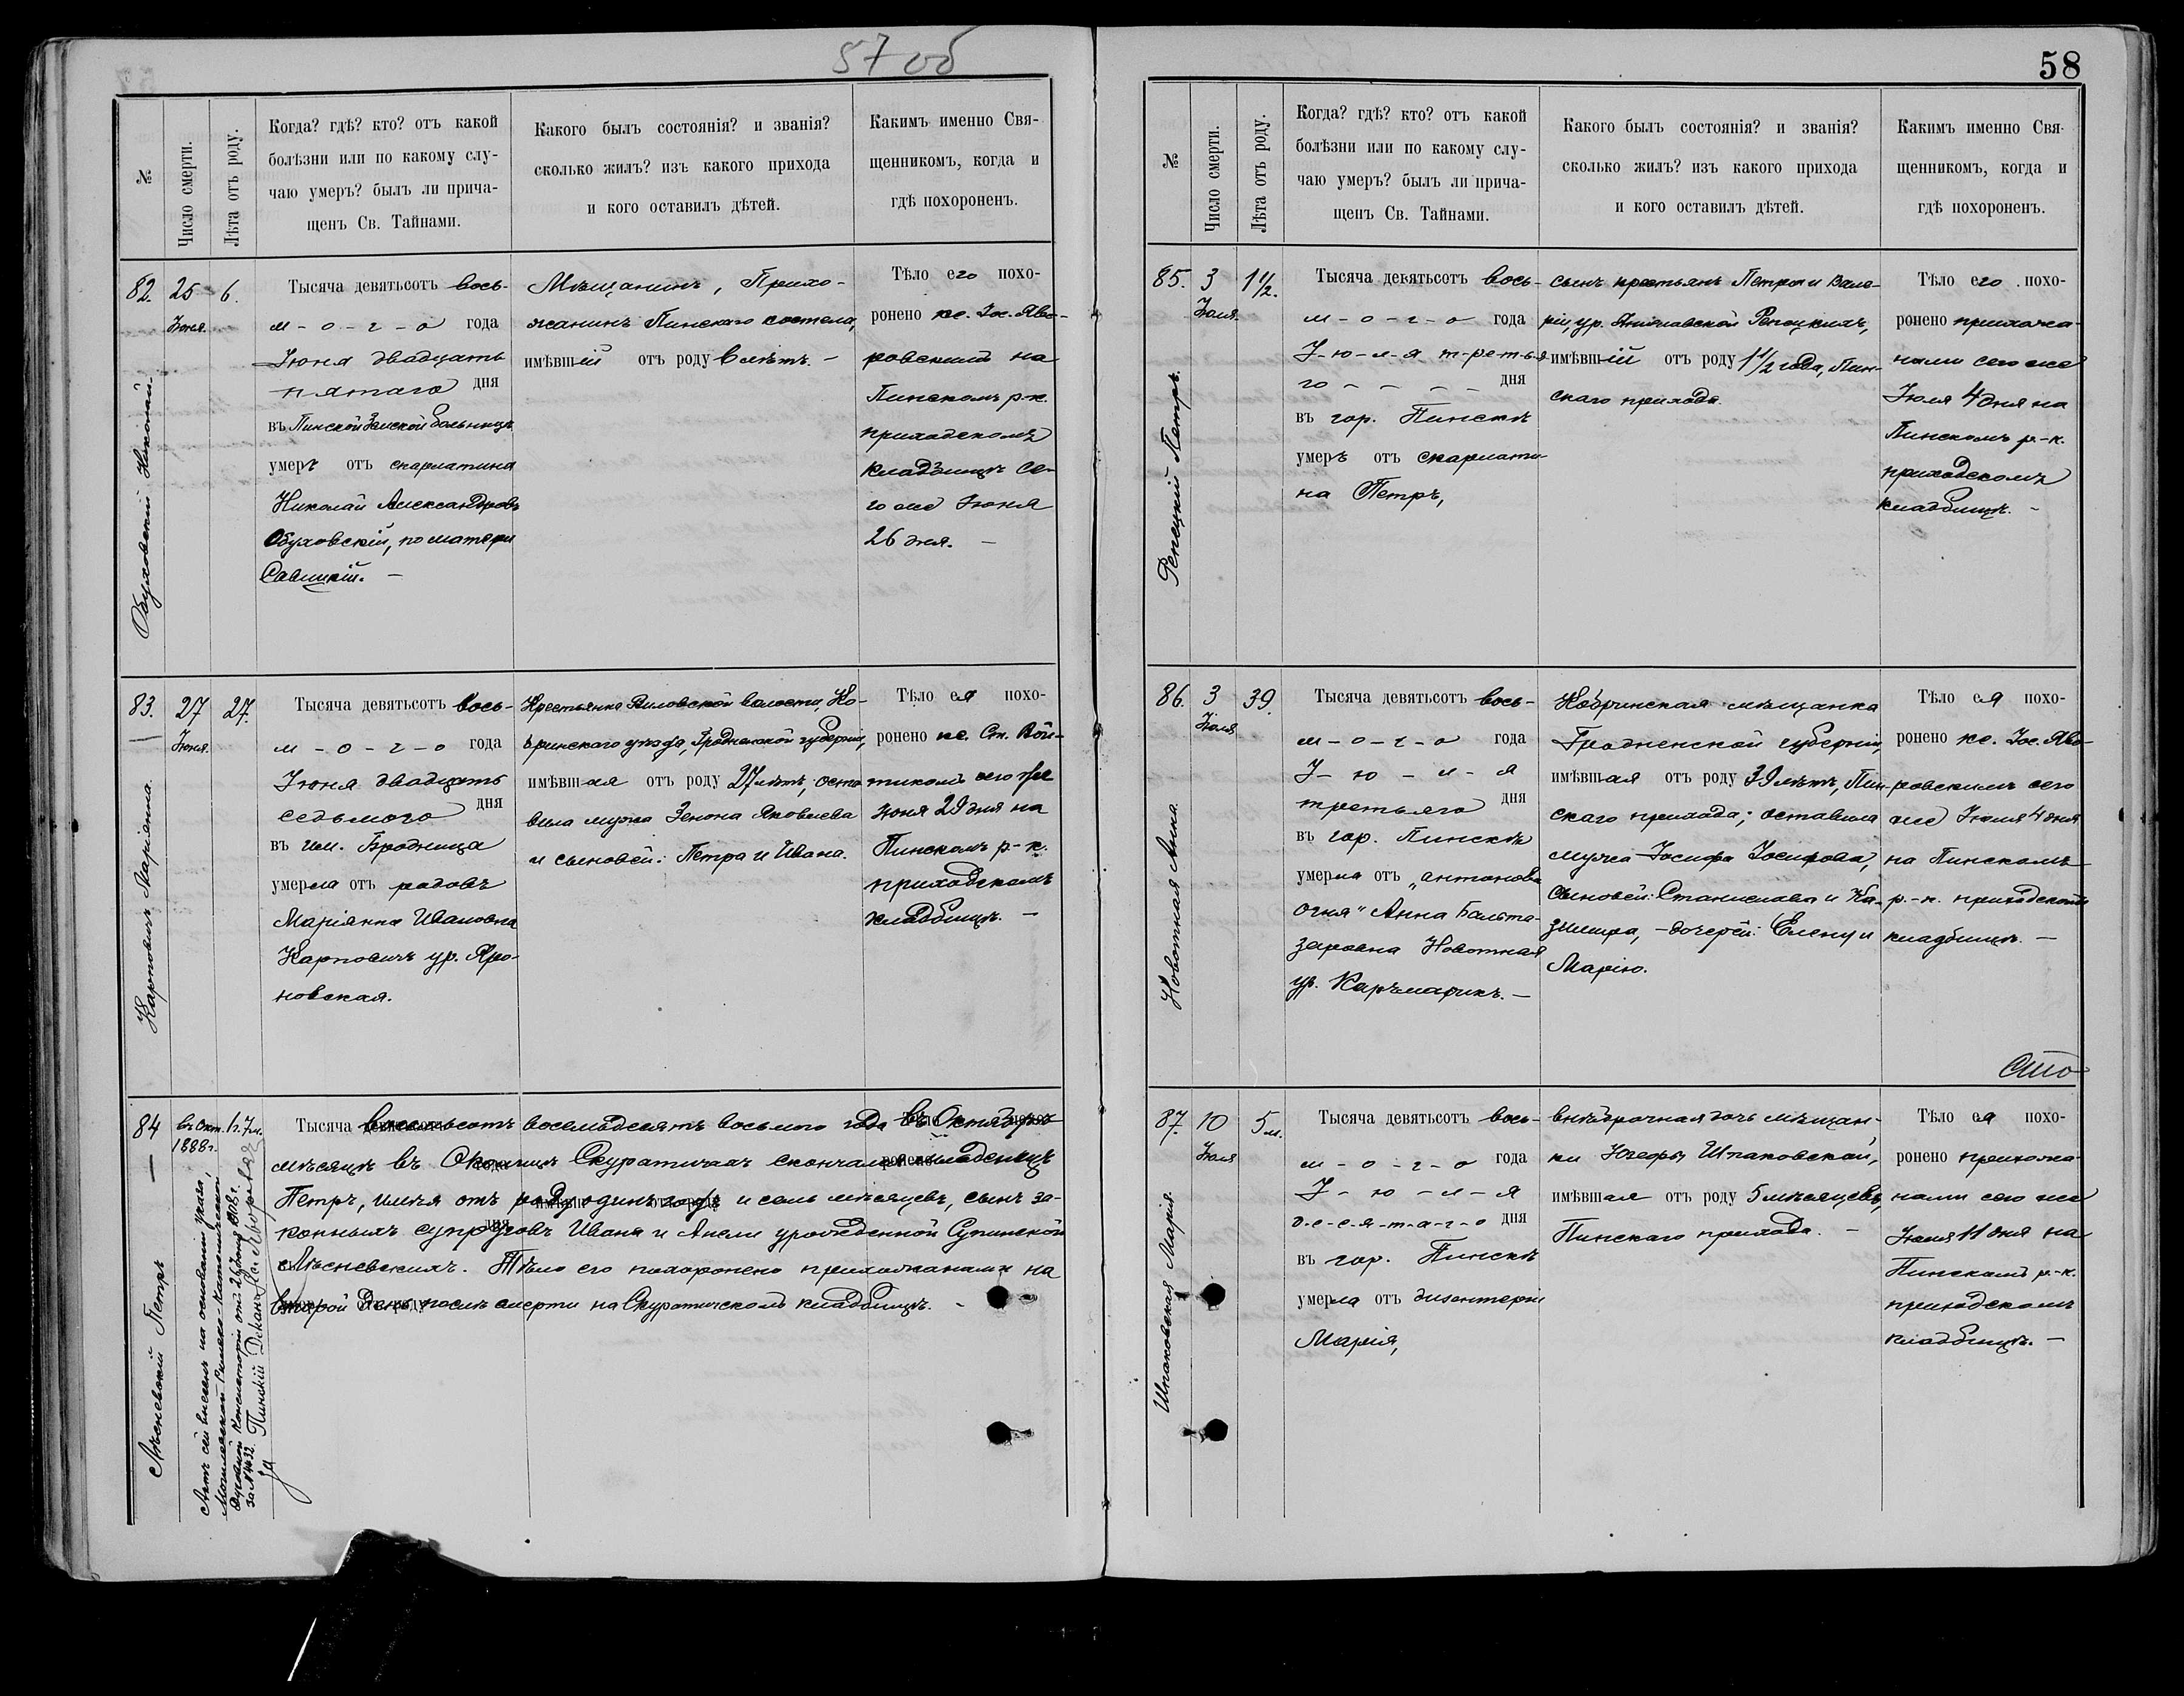 57 об
№
Число смерти.
Лѣта отъ роду.
Когда? гдѣ? кто? отъ какой
болѣзни или по какому слу-
чаю умеръ? былъ ли прича-
щенъ Св. Тайнами.
Какого былъ состоянія? и званія?
сколько жилъ? изъ какого прихода
и кого оставилъ дѣтей.
Какимъ именно Свя-
щенникомъ, когда и
гдѣ похороненъ.
82.
Обуховскій Николай.
25
Іюня.
6.
Тысяча девятьсотъ вось-
м-о-г-о года
Іюня двадцать
пятаго дня
въ Пинской Земской больницѣ
умеръ отъ скарлатина
Николай Александровъ
Обуховскій, по матери
Савицкій. –
Мѣщанинъ, Прихо-
жанинъ Пинскаго костела,
имѣвшій отъ роду 6 лѣтъ. –
Тѣло его похо-
ронено кс. Іос. Яво-
ровскимъ на
Пинскомъ р-к.
приходскомъ
кладбищѣ се-
го же Іюня
26 дня. –
83.
Карповичъ Маріянна.
27
Іюня.
27.
Тысяча девятьсотъ вось-
м-о-г-о года
Іюня двадцать
седьмого дня
въ им. Бродница
умерла отъ родовъ
Маріянна Ивановна
Карповичъ ур. Яро-
новская.
Крестьянка Виловской волости, Ко-
бринскаго уѣзда, Гродненской губерніи,
имѣвшая отъ роду 27 лѣтъ; оста-
вила мужа Зенона Яковлева
и сыновей: Петра и Ивана.
Тѣло ея похо-
ронено кс. Ст. Вой-
тикомъ сего же
Іюня 29 дня на
Пинскомъ р-к.
приходскомъ
кладбищѣ. –
84
Лѣсневскій Петръ
въ Окт.
1888г.
1г. 7м.
Актъ сей внесенъ на основаніи указа,
Могилевской Римско-Католической
Духовной Консисторіи отъ 26 Іюня 1908 г.
за № 4632. Пинскій Деканъ
Тысяча восемьсотъ восемьдесятъ восьмого года въ Октябрѣ
мѣсяцѣ въ Скуратичахъ скончался младенецъ
Петръ, имѣя отъ роду одинъ годъ и семь мѣсяцевъ, сынъ за-
конныхъ супруговъ Ивана и Анели урожденной Супинской
Лѣсневскихъ. Тѣло его похоронено прихожанами на
второй день послѣ смерти на Скуратичскомъ кладбищѣ. –
58
№
Число смерти.
Лѣта отъ роду.
Когда? гдѣ? кто? отъ какой
болѣзни или по какому слу-
чаю умеръ? былъ ли прича-
щенъ Св. Тайнами.
Какого былъ состоянія? и званія?
сколько жилъ? изъ какого прихода
и кого оставилъ дѣтей.
Какимъ именно Свя-
щенникомъ, когда и
гдѣ похороненъ.
85.
Репецкій Петръ.
3
Іюля.
1 1/2.
Тысяча девятьсотъ вось-
м-о-г-о года
І-ю-л-я т-реть-я-
го – – – – дня
въ гор. Пинскѣ
умеръ отъ скарлати-
на Петръ,
сынъ крестьянъ Петра и Вале-
ріи, ур. Репецкихъ,
имѣвшій отъ роду 1 1/2 года, Пин-
скаго прихода.
Тѣло его похо-
ронено прихожа-
нами сего же
Іюля 4 дня на
Пинскомъ р.-к.
приходскомъ
кладбищѣ. –
86.
Новотная Анна.
3
Іюля
39.
Тысяча девятьсотъ вось-
м-о-г-о года
І-ю-л-я
третьяго дня
въ гор. Пинскѣ
умерла отъ „антонова
огня“ Анна Бальта-
заровна Новотная
ур. Карѣмарикъ. –
Кобринская мѣщанка
Гродненской губерніи,
имѣвшая отъ роду 39 лѣтъ, Пин-
скаго прихода; оставила
мужа Іосифа Іосифова,
сыновей: Станислава и Ка-
зимира, – дочерей: Елену и
Марію.
Тѣло ея похо-
ронено кс. Іос. Яво-
ровскимъ сего
же Іюля 4 дня
на Пинскомъ
р.-к. приходскомъ
кладбищѣ. –
87.
Шпаковская Марія.
10
Іюля
5 м.
Тысяча девятьсотъ вось-
м-о-г-о года
І-ю-л-я
д-е-с-я-т-а-г-о дня
въ гор. Пинскѣ
умерла отъ дизентеріи
Марія,
внѣбрачная дочь мѣщан-
ки Шпаковской,
имѣвшая отъ роду 5 мѣсяцевъ,
Пинскаго прихода. –
Тѣло ея похо-
ронено прихожа-
нами сего же
Іюля 11 дня на
Пинскомъ р.-к.
приходскомъ
кладбищѣ. –